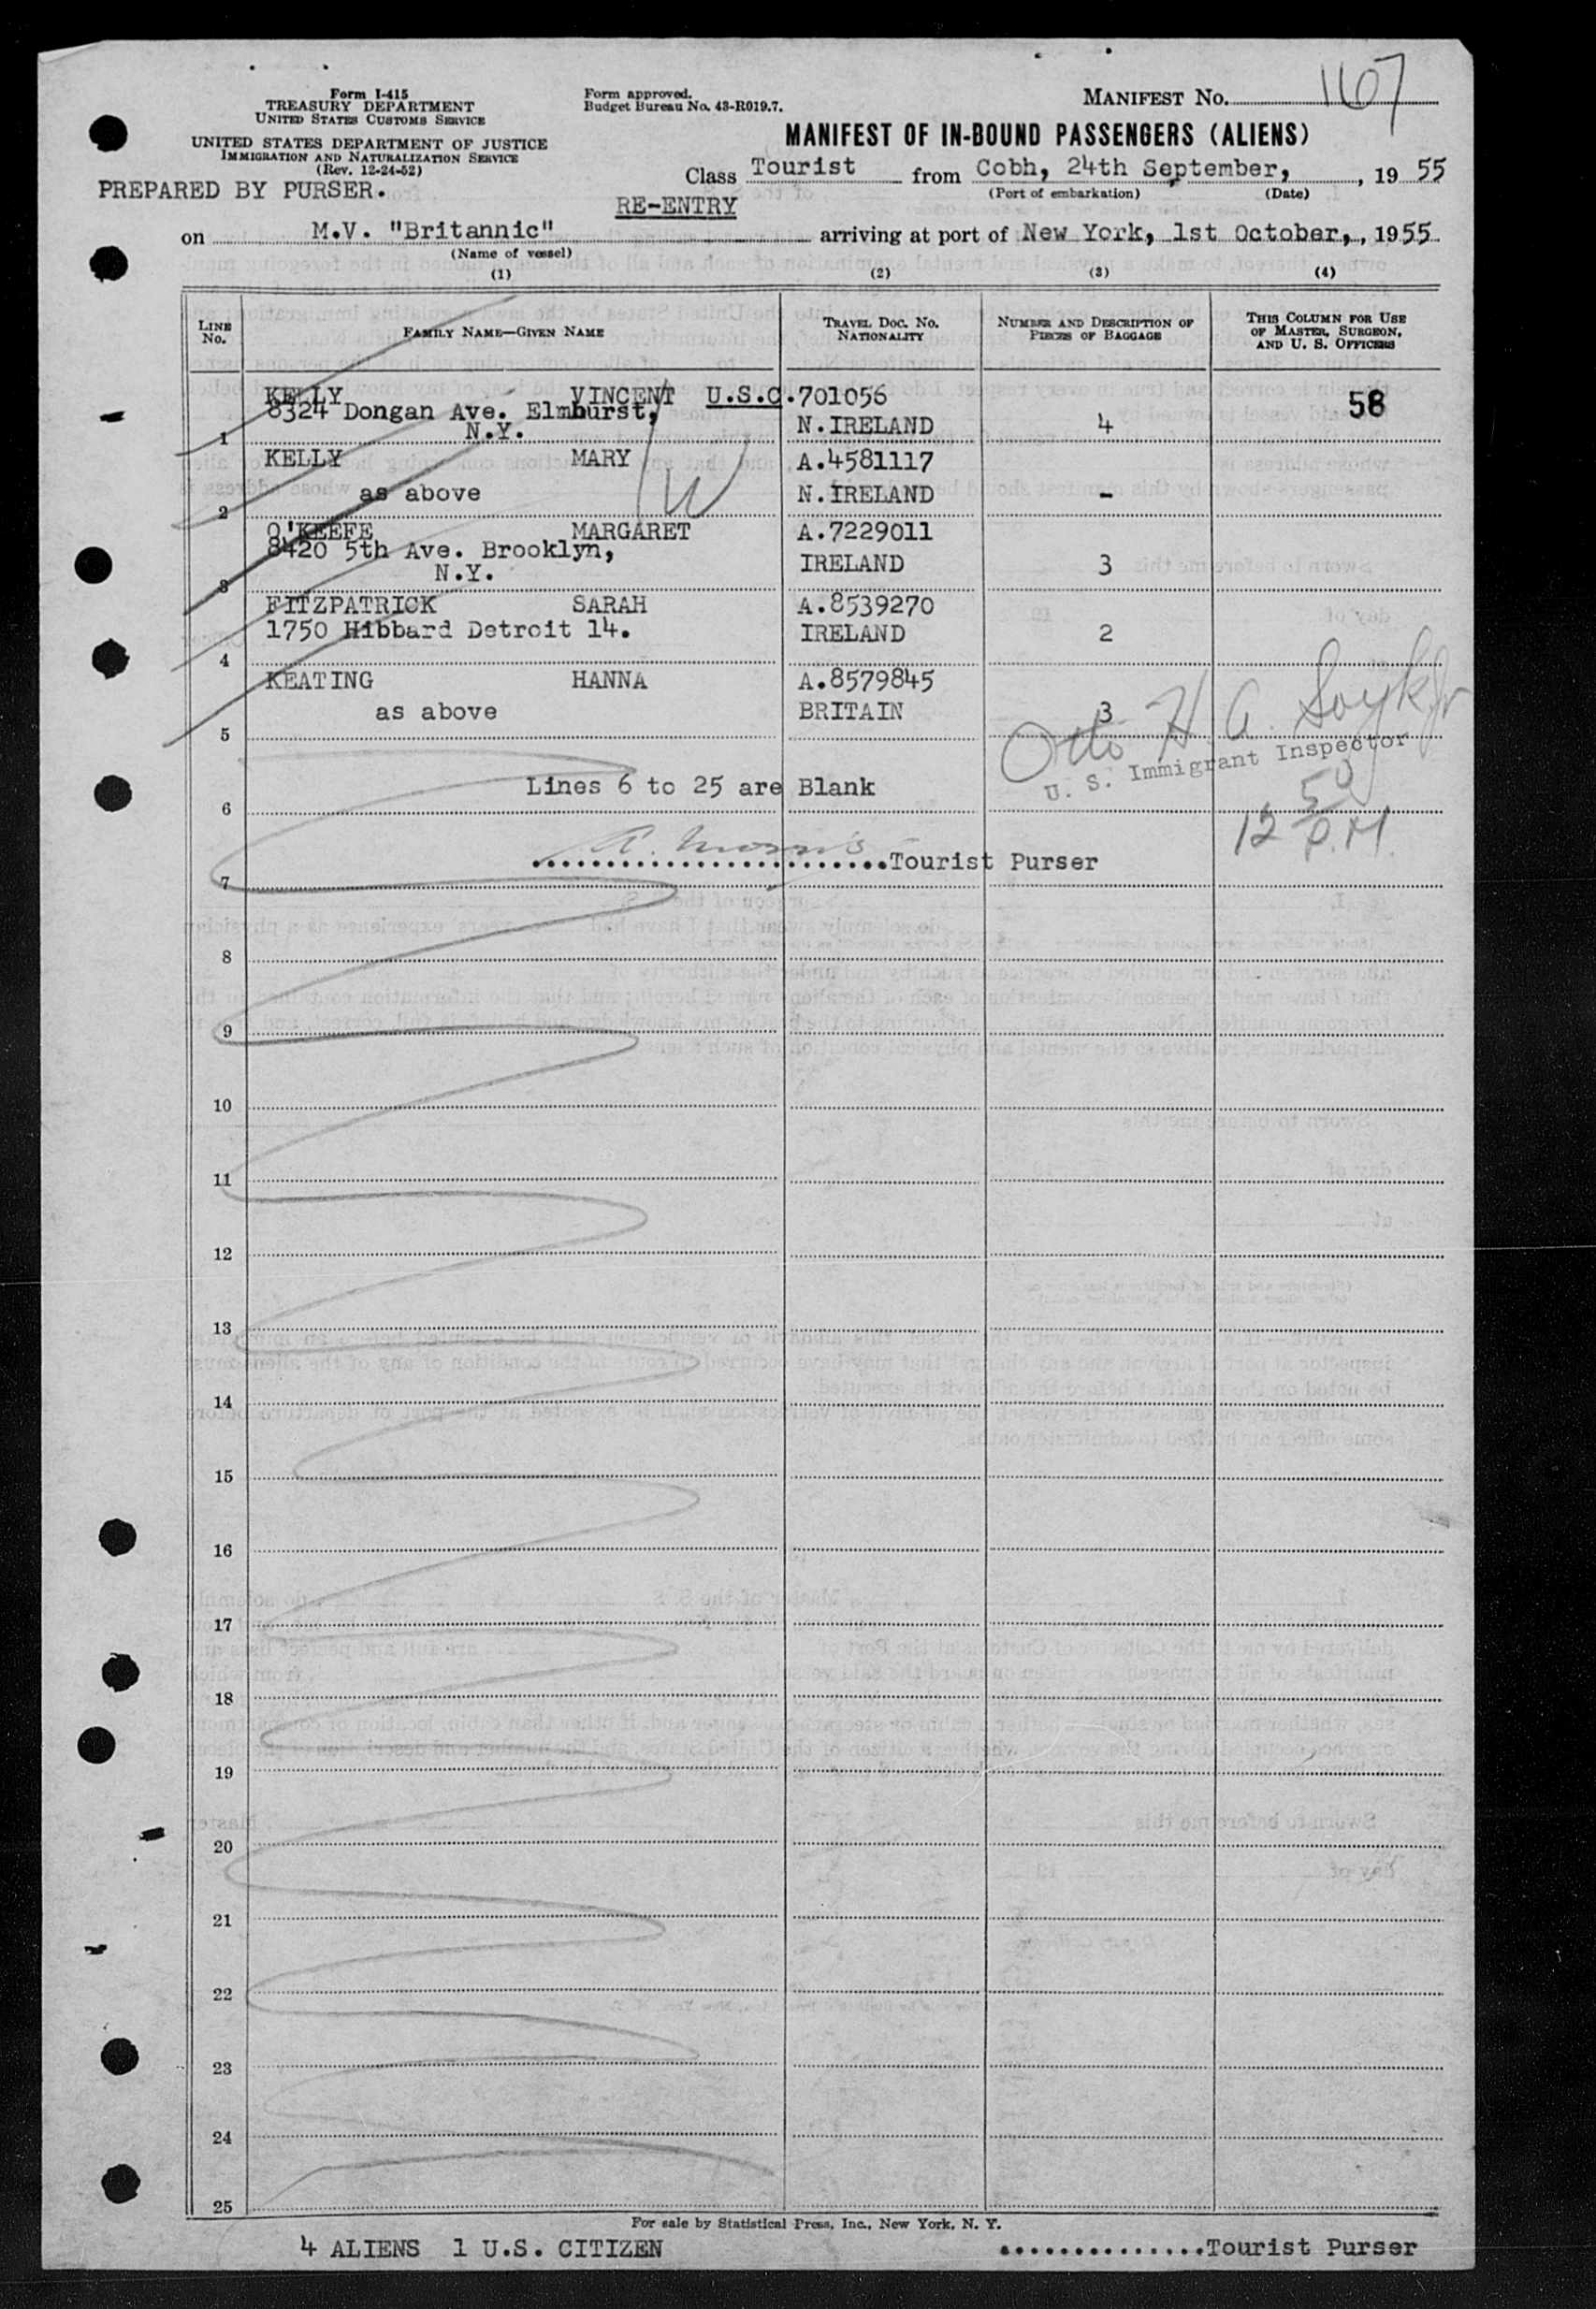 Form I-415
TREASURY DEPARTMENT
UNITED STATES CUSTOMS SERVICE
UNITED STATES DEPARTMENT OF JUSTICE
IMMIGRATION AND NATURALIZATION SERVICE
(Rev. 12-24-52)
PREPARED BY PURSER.
Form approved.
Budget Bureau No. 43-R019.7.
MANIFEST NO. 167
MANIFEST OF IN-BOUND PASSENGERS (ALIENS)
Class Tourist from Cobh, 24th September, , 19 55
(Port of embarkation) (Date)
RE-ENTRY
on M.V. "Britannic" arriving at port of New York, 1st October, , 1955.
(Name of vessel)
(1) (2) (3) (4)
LINE NO. FAMILY NAME—GIVEN NAME TRAVEL DOC. NO. NATIONALITY NUMBER AND DESCRIPTION OF PIECES OF BAGGAGE THIS COLUMN FOR USE OF MASTER, SURGEON, AND U. S. OFFICERS
KELLY VINCENT U.S.C.701056 56
8324 Dongan Ave. Elmhurst,
1 N.Y. N.IRELAND 4
KELLY MARY A.4581117
2 as above N.IRELAND -
W
O'KEEFE MARGARET A.7229011
8420 5th Ave. Brooklyn,
3 N.Y. IRELAND 3
FITZPATRICK SARAH A.8539270
4 1750 Hibbard Detroit 14. IRELAND 2
KEATING HANNA A.8579845
5 as above BRITAIN 3
Otto H. A.
U. S. Immigrant Inspector
12 50 P.M.
6 Lines 6 to 25 are Blank
A. Morris
7 ........................Tourist Purser
8
9
10
11
12
13
14
15
16
17
18
19
20
21
22
23
24
25
For sale by Statistical Press, Inc., New York, N. Y.
4 ALIENS 1 U.S. CITIZEN ...............Tourist Purser